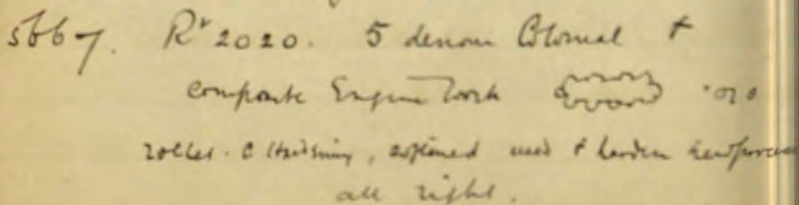 5667. Rr 2020. 5 denom Colonial &
composite Engine Work .010
roller. C Hardening, softened used & harden
all right.